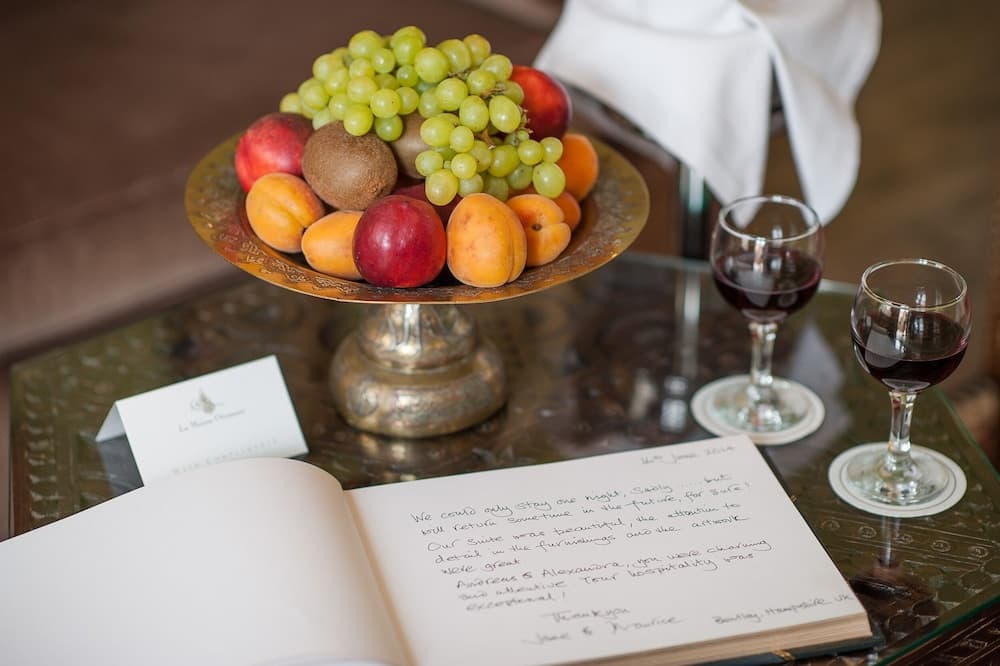 La Maison Ottomane
With Compliments
16th June 2014
We could only stay one night, Sadly ..... but
will return sometime in the future, for sure!
Our suite was beautiful, the attention to
detail in the furnishings and the artwork
were great
Andreas & Alexandra, you were charming
and attentive Your hospitality was
exceptional!
Thankyou
Jane & Maurice Bentley, Hampshire UK